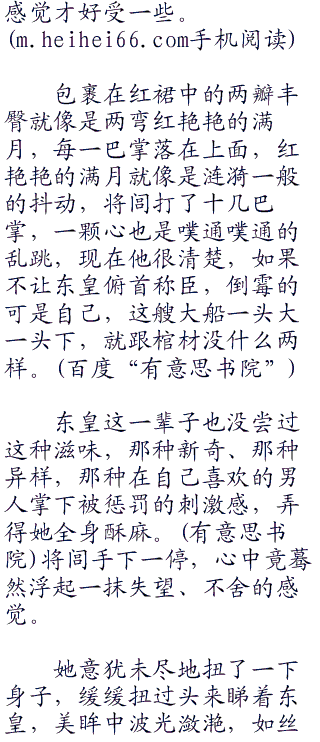 感觉才好受一些。
(m.heihei66.com手机阅读)
包裹在红裙中的两瓣丰
臀就像是两弯红艳艳的满
月，每一巴掌落在上面，红
艳艳的满月就像是涟漪一般
的抖动，将闾打了十几巴
掌，一颗心也是噗通噗通的
乱跳，现在他很清楚，如果
不让东皇俯首称臣，倒霉的
可是自己，这艘大船一头大
一头下，就跟棺材没什么两
样。(百度“有意思书院”)
东皇这一辈子也没尝过
这种滋味，那种新奇、那种
异样，那种在自己喜欢的男
人掌下被惩罚的刺激感，弄
得她全身酥麻。(有意思书
院)将闾手下一停，心中竟蓦
然浮起一抹失望、不舍的感
觉。
她意犹未尽地扭了一下
身子，缓缓扭过头来睇着东
皇，美眸中波光潋滟，如丝